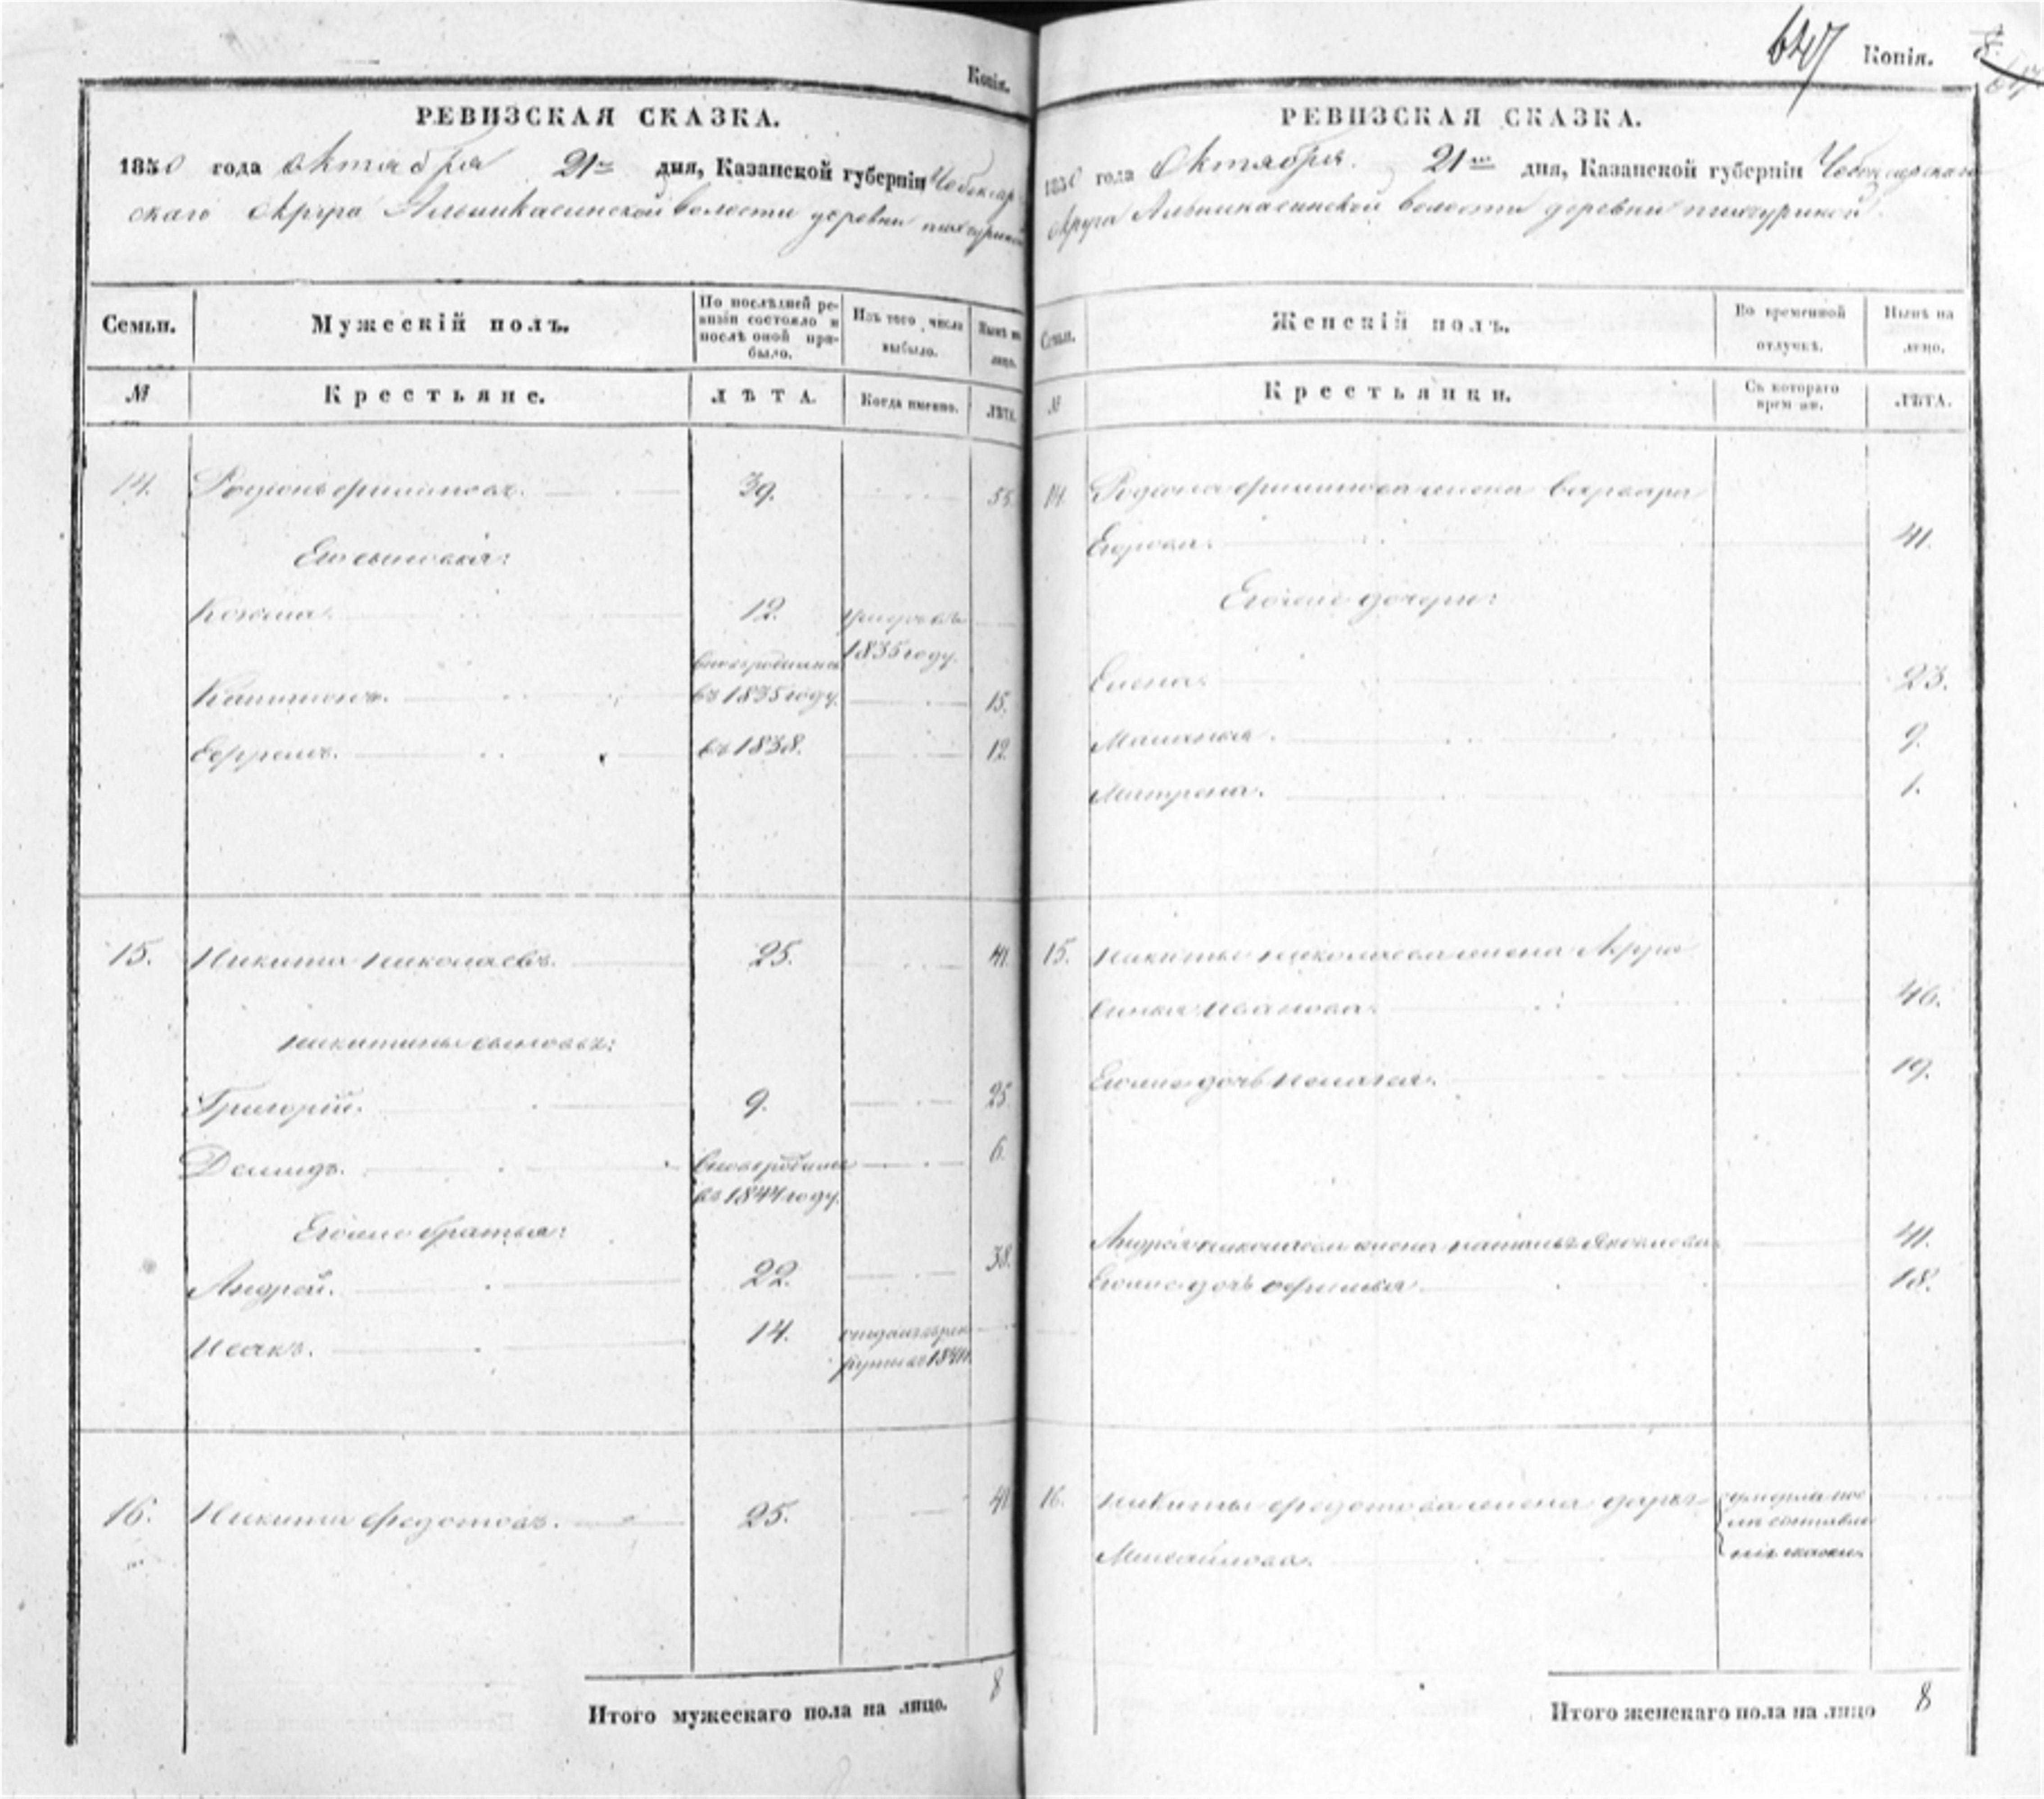 Копія.
РЕВИЗСКАЯ СКАЗКА.
1850 года Октября 21го дня, Казанской губерніи Чебоксар
скаго Округа волости деревни
Семьи.
Мужескій полъ.
По послѣдней ре-
визіи состояло и
послѣ оной при-
было.
Изъ того числа
выбыло.
Нынѣ на
лицо.
№
Крестьяне.
ЛѢТА.
Когда именно.
ЛѢТА.
14. Родіонъ Филиповъ. 39. 55.
Его сыновья:
Козьма. 12. умеръ въ
1835 году.
вновьрожденъ
Капитонъ. въ 1835 году. 15.
Ефремъ. въ 1838. 12.
15. Никита Николаевъ. 25. 41.
Никитины сыновья:
Григорій. 9. 25.
Демидъ. 6.
въ 1844 году.
Егоже братья:
Андрей. 22. 38.
Исакъ. 14. отданъ въ рек
руты въ
16. Никита Федотовъ. 25. 41
Итого мужескаго пола на лицо. 8
647 Копія.
РЕВИЗСКАЯ СКАЗКА.
1850 года Октября 21го дня, Казанской губерніи Чебоксарскаго
Округа волости деревни
Семьи.
Женскій полъ.
Во временной
отлучкѣ.
Нынѣ на
лицо.
№
Крестьянки.
Съ котораго
времени.
ЛѢТА.
14. Родіона Филипова жена Варвара
Егорова. 41.
Егоже дочери:
Елена. 23.
9.
Матрена. 1.
15. Никиты Николаева жена Афро
синья Иванова. 46.
Егоже дочь Пелагея. 19.
Андрея Николаева жена Наталья Яковлева. 41.
Егоже дочь 18.
16. Никиты Федотова жена Дарья умерла пос
лѣ составле
Михайлова. нія сказки.
Итого женскаго пола на лицо 8